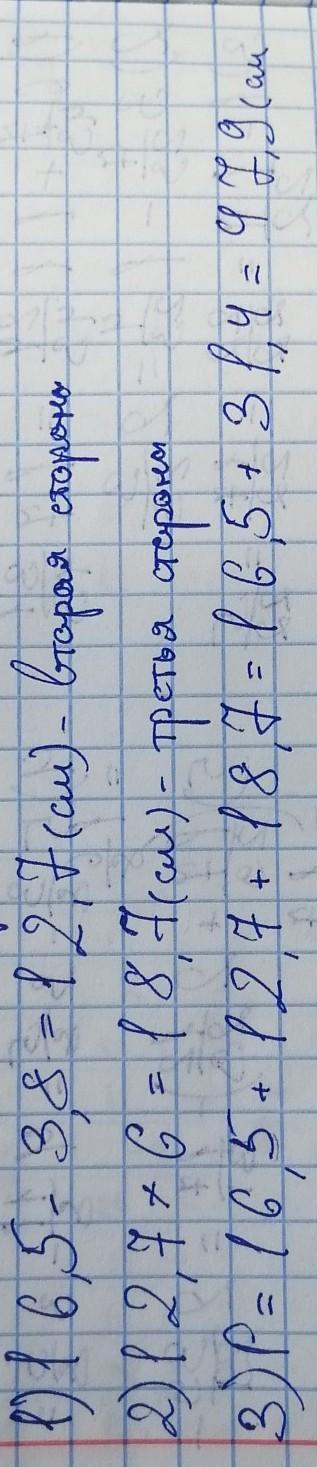 1) 16,5 - 3,8 = 12,7 (см) - вторая сторона
2) 12,7 + 6 = 18,7 (см) - третья сторона
3) P = 16,5 + 12,7 + 18,7 = 16,5 + 31,4 = 47,9 (см